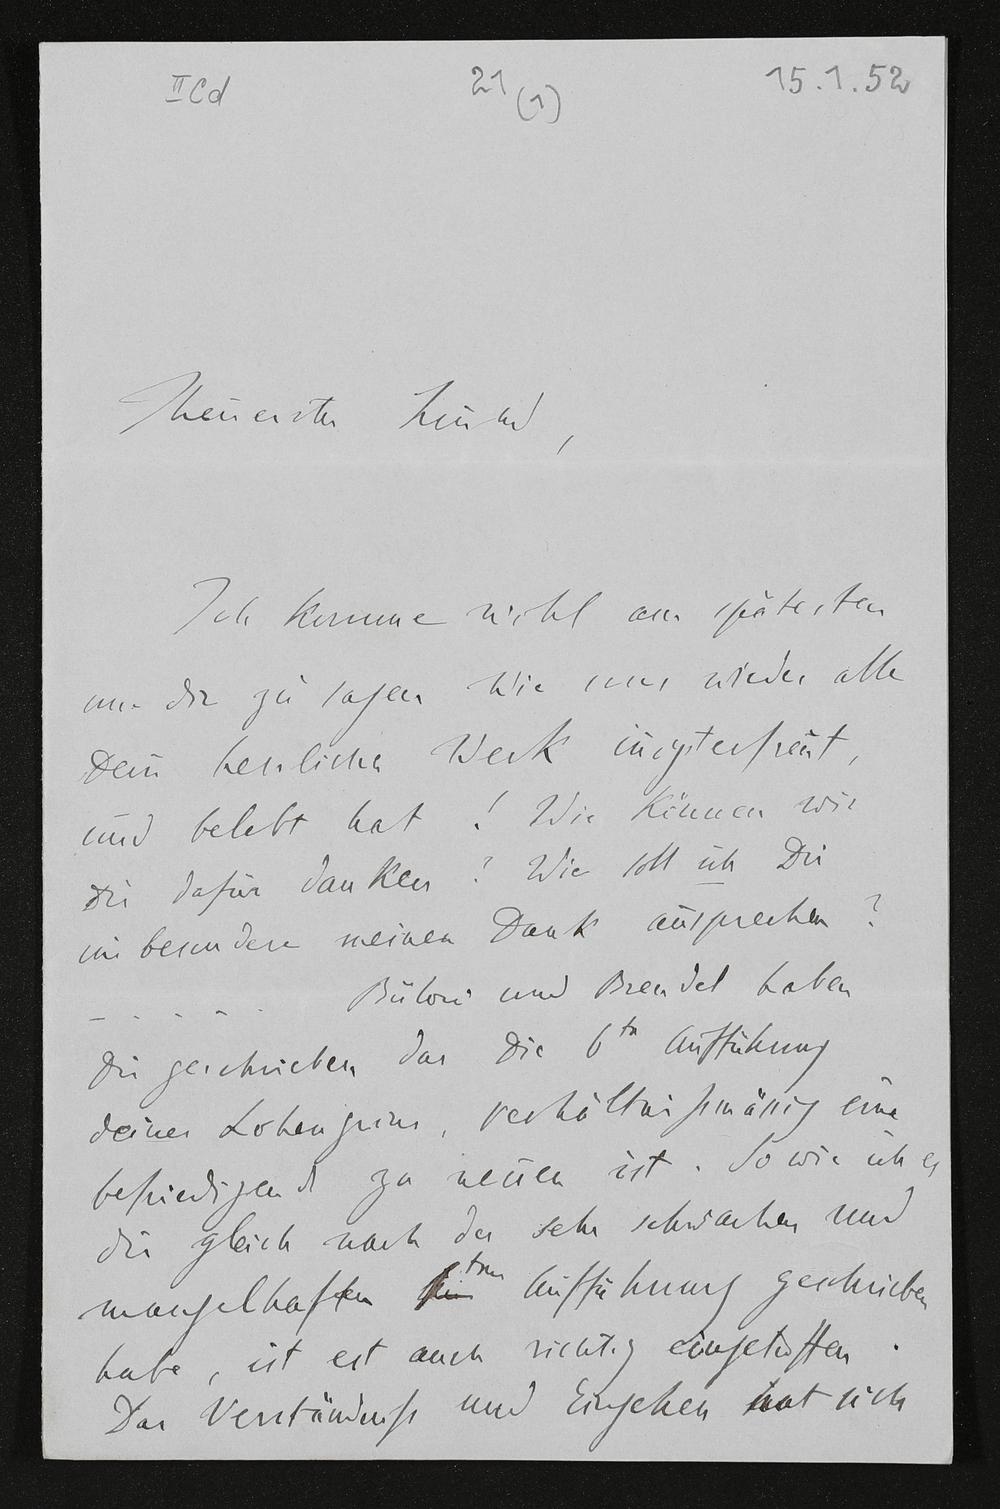 II Cd 21 (1) 15.1.52
Theuerster Freund,
Ich komme nicht am spätesten
um dir zu sagen wie uns wieder alle
Dein herrliches Werk erfreut,
und belebt hat ! Wie können wir
Dir dafür danken ? Wie soll ich Dir
insbesondere meinen Dank aussprechen ?
_ . . . - . Bülow und Brendel haben
Dir geschrieben das die 6te Aufführung
deines Lohengrins, verhältnissmässig eine
befriedigend zu nennen ist. So wie ich es
dir gleich nach der sehr schwachen und
mangelhaften ten Aufführung geschrieben
habe, ist est auch richtig eingetroffen.
Das Verständniss und Eingehen hat sich